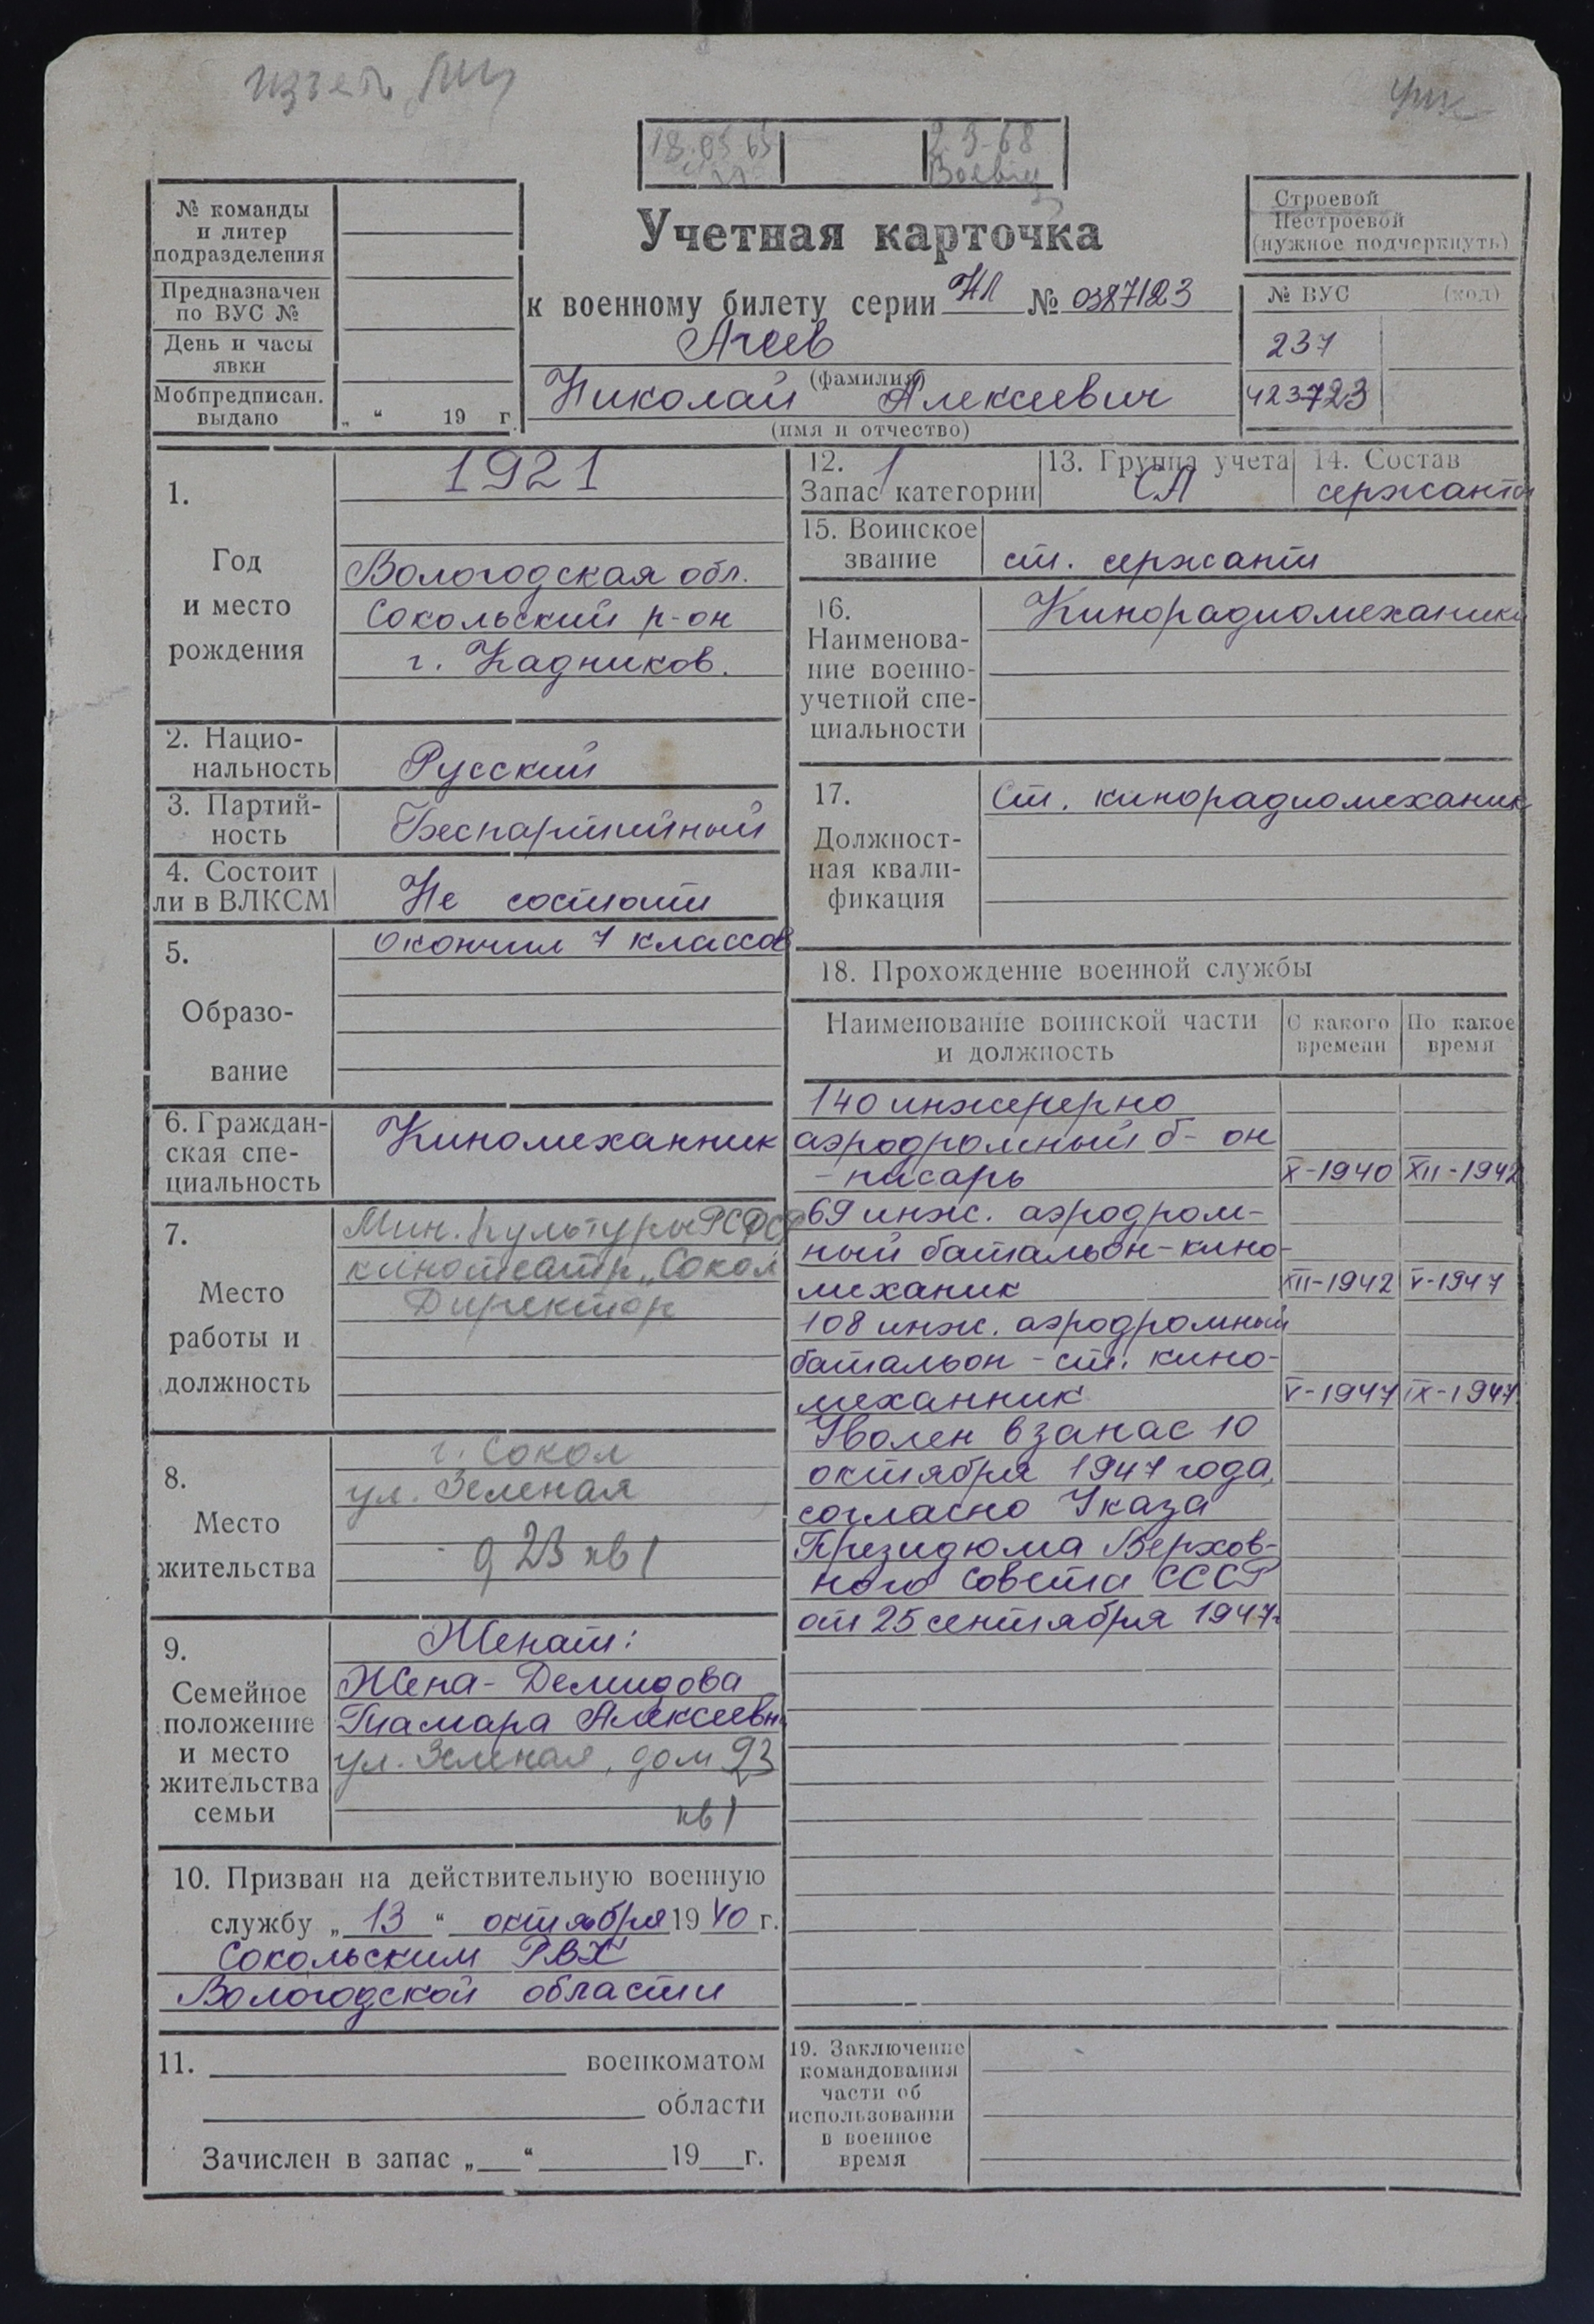 18.03.65
2.9-68
№ команды
и литер
подразделения
Предназначен
по ВУС №
День и часы
явки
Мобпредписан.
выдано
„ “ 19 г.
Учетная карточка
к военному билету серии НЛ № 0387123
Агеев
(фамилия)
Николай Алексеевич
(имя и отчество)
Строевой
Нестроевой
(нужное подчеркнуть)
№ ВУС (код)
237
423723
1.
Год
и место
рождения
1921
Вологодская обл.
Сокольский р-он
г. Кадников.
2. Нацио-
нальность
Русский
3. Партий-
ность
Беспартийный
4. Состоит
ли в ВЛКСМ
Не состоит
5.
Образо-
вание
Окончил 7 классов
6. Граждан-
ская спе-
циальность
Киномеханник
7.
Место
работы и
должность
Мин. культуры РСФСР
кинотеатр „Сокол
Директор
8.
Место
жительства
г. Сокол
ул. Зеленая
д 23 кв 1
9.
Семейное
положение
и место
жительства
семьи
Женат:
Жена - Демидова
Тамара Алексеевн
ул. Зеленая, дом 23
кв 1
10. Призван на действительную военную
службу „ 13 “ октября 1940 г.
Сокольским РВК
Вологодской области
11. военкоматом
области
Зачислен в запас „ “ 19 г.
12. 1
Запас категории
13. Группа учета
СА
14. Состав
сержанты
15. Воинское
звание
ст. сержант
16.
Наименова-
ние военно-
учетной спе-
циальности
Кинорадиомеханики
17.
Должност-
ная квали-
фикация
Ст. кинорадиомеханик
18. Прохождение военной службы
Наименование воинской части
и должность
С какого
времени
По какое
время
140 инженерно
аэродромный б-он
- писарь X-1940 XII-1942
69 инж. аэродром-
ный батальон - кино-
механик XII-1942 V-1947
108 инж. аэродромный
батальон - ст. кино-
механник V-1947 IX-1947
Уволен в запас 10
октября 1947 года,
согласно Указа
Президюма Верхов-
ного Совета СССР
от 25 сентября 1947г
19. Заключение
командования
части об
использовании
в военное
время